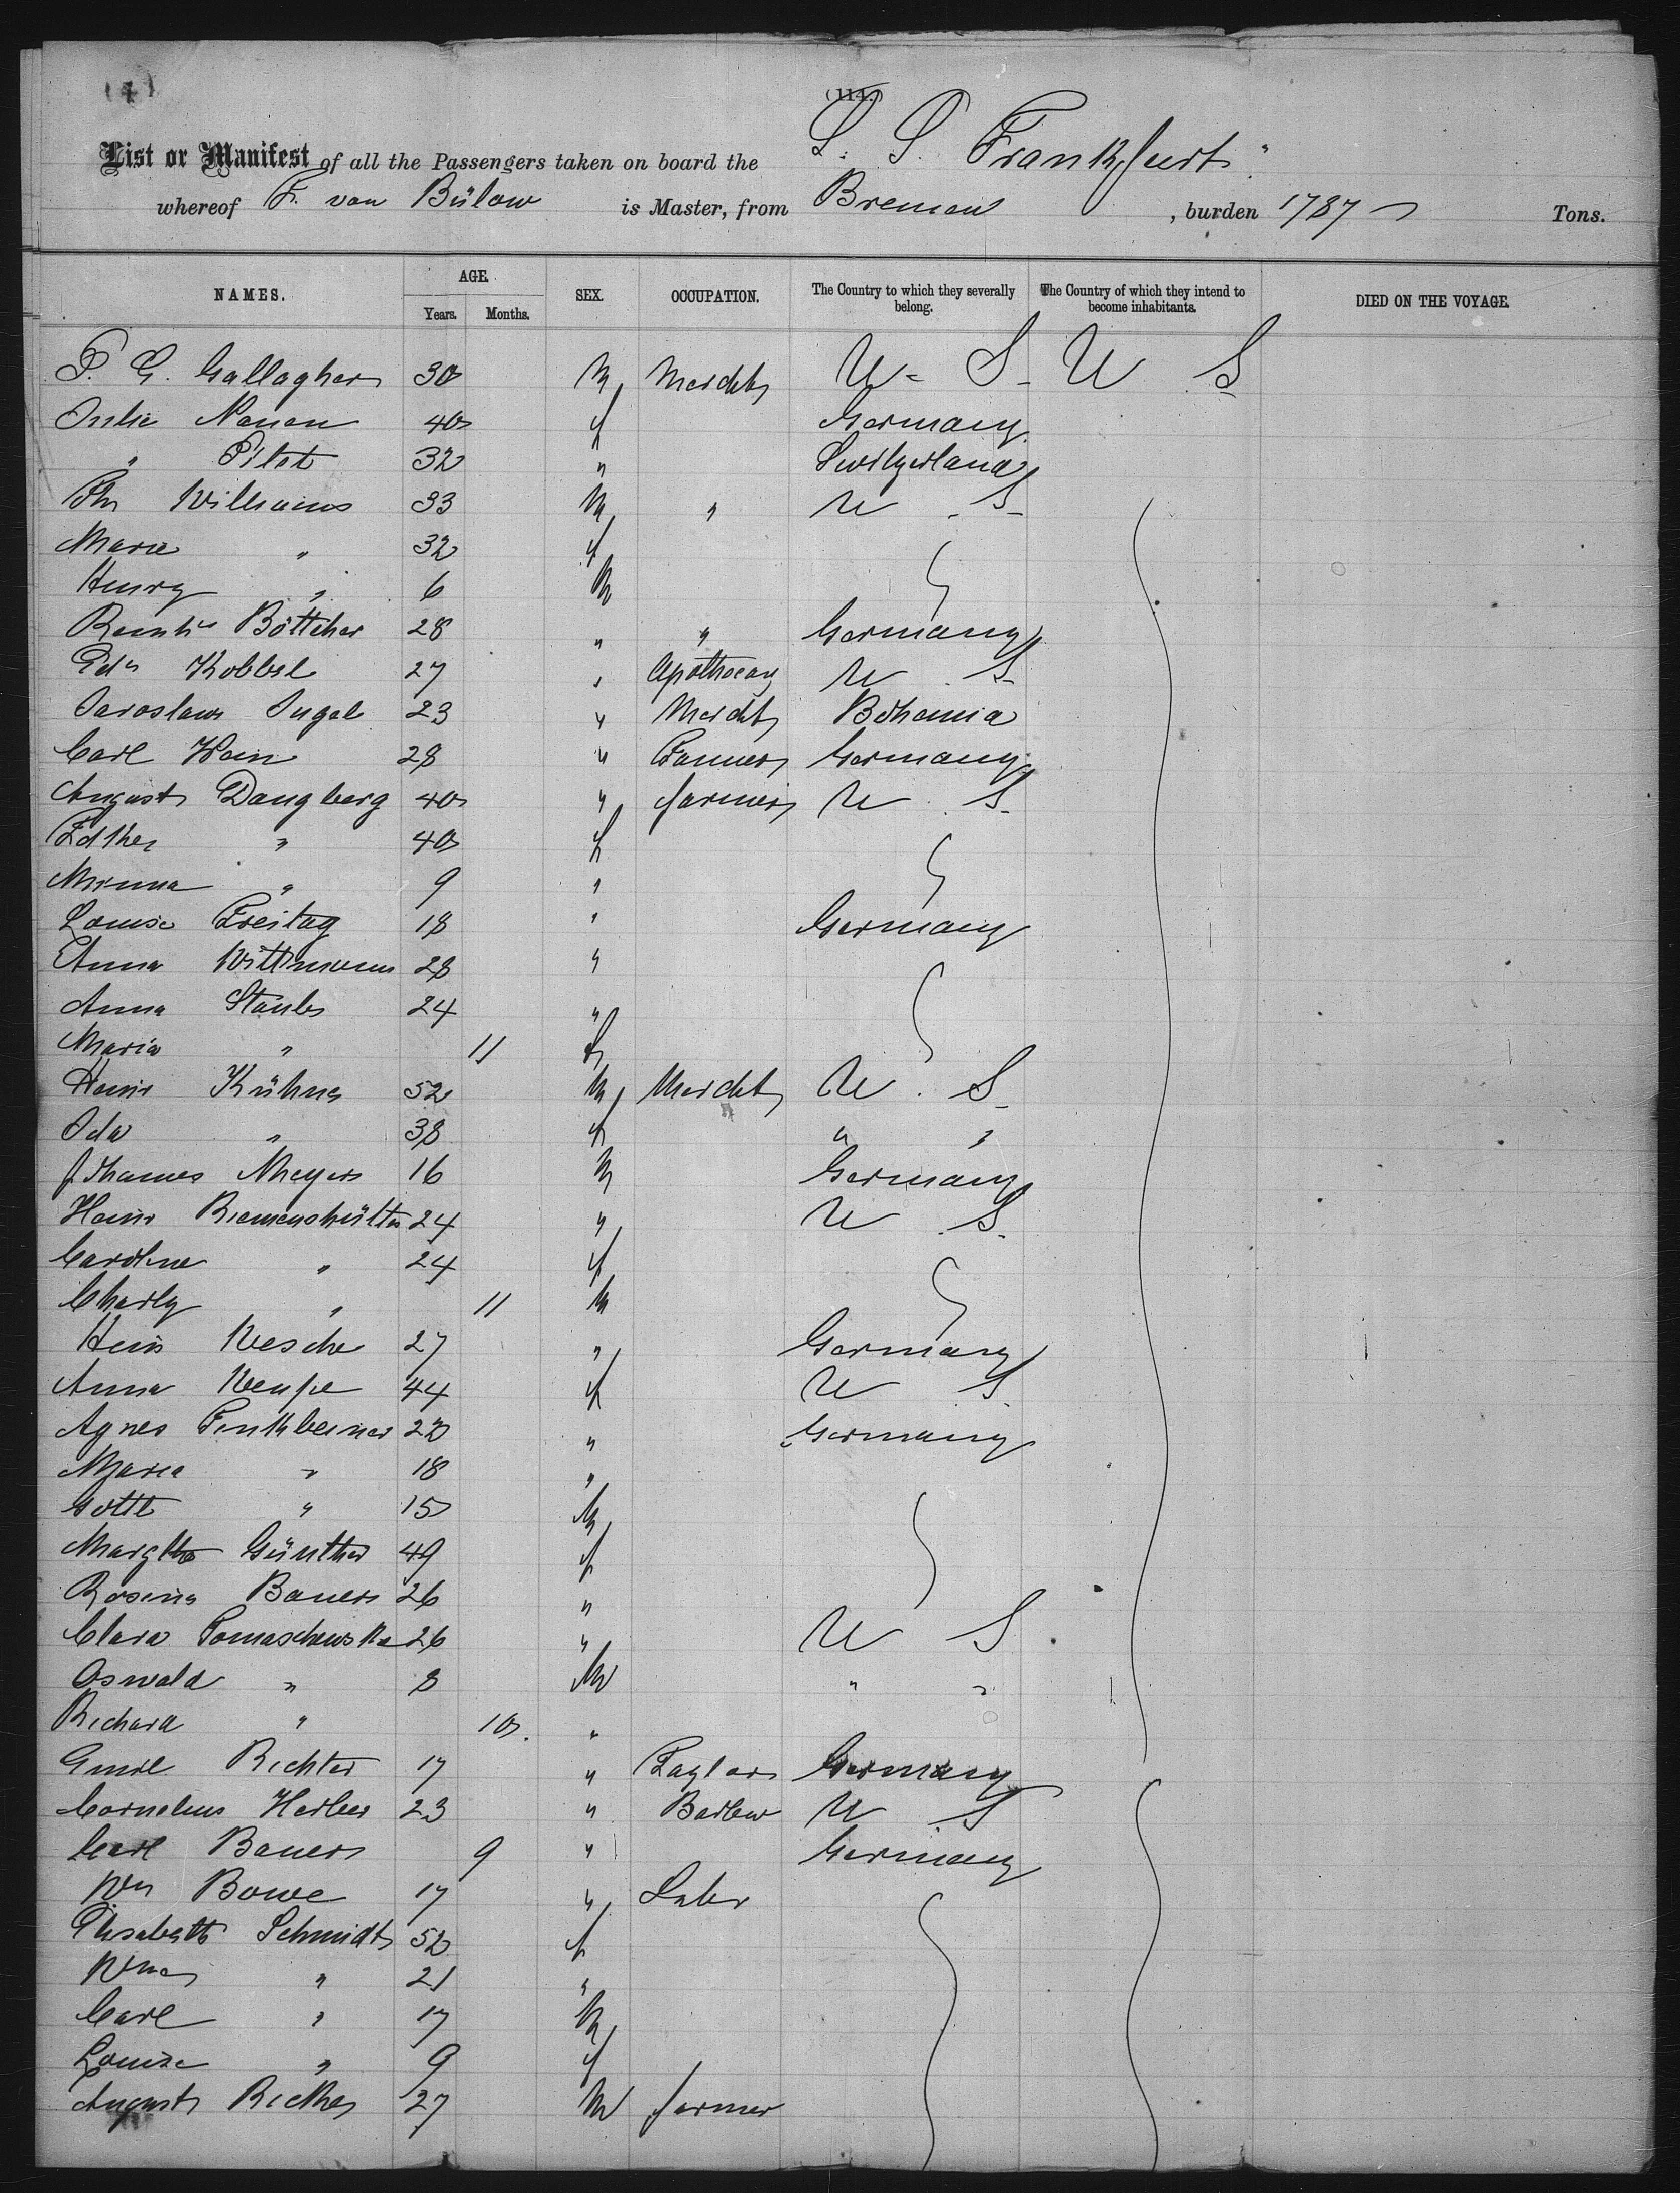 (4)
(114.)
List or Manifest of all the Passengers taken on board the S. S. Frankfurt"
whereof F. von Bülow is Master, from Bremen, burden 1787 Tons.
NAMES. AGE. SEX. OCCUPATION. The Country to which they severally belong. The Country of which they intend to become inhabitants. DIED ON THE VOYAGE.
Years. Months.
P. G. Gallagher 30 M Merchts U - S - U S
Julie Nanen 40 f Germany
" Pilot 32 " Switzerland
Phi Williams 33 M " U . S -
Marie " 32 f
Henry " 6 M
Reinh Böttcher 28 " " Germany
Edn Kobbel 27 " Apothecary U . S
Jaroslaw Jngal 23 " Merchts Bohemia
Carl Wein 28 " Farmer Germany
August Dangberg 40 " farmer U . S
Esther " 40 f
Minna " 9 "
Louise Freitag 18 " Germany
Anna Wittmann 28 "
Anna Staube 24 "
Maria " 11 f
Heinr Kühne 52 M Merchts U . S
Ida " 38 f " "
Johannes Meyer 16 M Germany
Heinr Riemenschütter 24 " U . S
Caroline " 24 f
Charly " 11 M
Hein Wesche 27 " Germany
Anna Wempe 44 f U S
Agnes Finkbeiner 22 " Germany
Maria " 18 "
Gottl " 15 M
Margthe Günther 49 f
Rosina Bauer 26 "
Clara Tomaschewska 26 " U S
Oswald " 8 M " "
Richard " 10. "
Emil Richter 17 " Taylor Germany
Cornelius Herber 23 " Barber U S
Carl Bauer 9 " Germany
Wm Bowe 17 " Labr
Elisabeth Schmidt 52 f
Wme " 21 "
Carl " 17 M
Louise " 9 f
August Ricke 27 M farmer